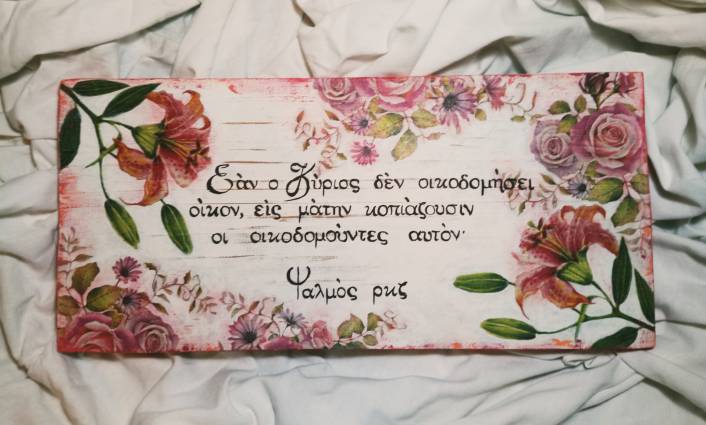 Εὰν ο Κύριος δὲν οικοδομήσει
οίκον, εἰς μὰτην κοπιὰζουσιν
οι οικοδομοὺντες αυτὸν·
Ψαλμὸς ρκζ